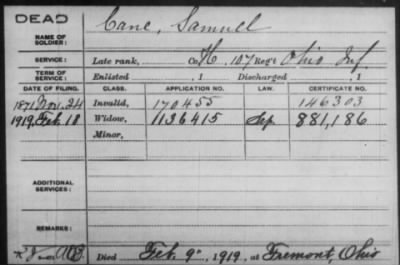 DEAD
NAME OF SOLDIER: Cane, Samuel
SERVICE: Late rank, Co. H, 107 Reg't Ohio Inf.
TERM OF SERVICE: Enlisted , 1 Discharged , 1
DATE OF FILING. CLASS. APPLICATION NO. LAW. CERTIFICATE NO.
1871, Nov. 24 Invalid, 170455 146303
1919, Feb. 18 Widow, 1136415 Sep 881,186
Minor,
ADDITIONAL SERVICES:
REMARKS:
Died Feb. 9", 1919, at Fremont, Ohio